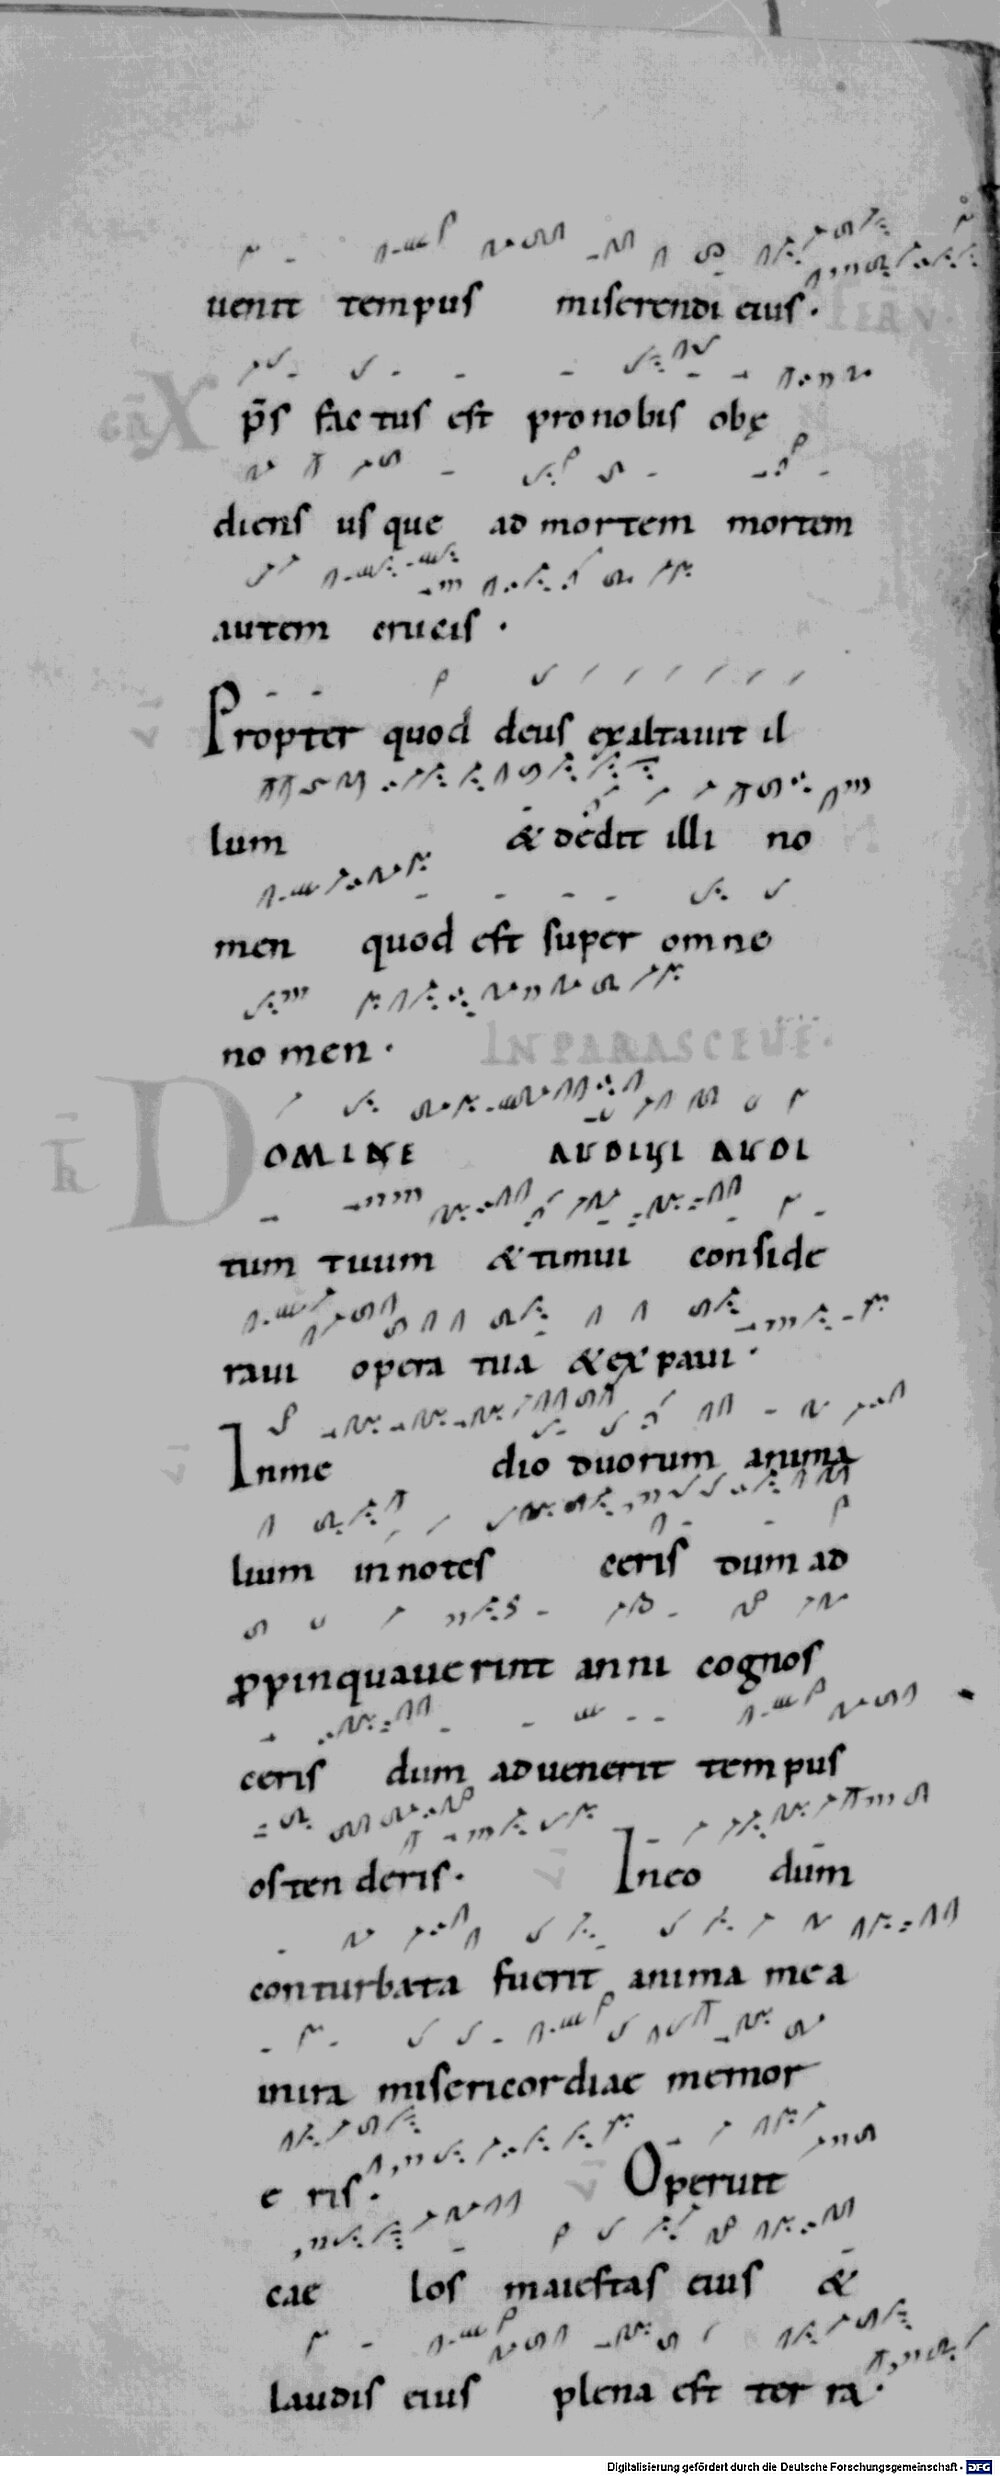 uenit tempus miserendi eius.
FER V.
GR X
p̄s factus est pro nobis obę
diens usque ad mortem mortem
autem crucis.
V̄
Propter quod deus exaltauit il
lum & dedit illi no
men quod est super omne
nomen. IN PARASCEUE.
TR̄ DOMINE AUDIUI AUDI
tum tuum & timui conside
raui opera tua & expaui.
V̄ In me dio duorum anima
lium innotes ceris dum ad
ꝓpinquauerint anni cognos
ceris dum aduenerit tempus
osten deris. V̄ In eo dum
conturbata fuerit anima mea
in ira misericordiae memor
e ris. V̄ Operuit
cae los maiestas eius &
laudis eius plena est ter ra.
Digitalisierung gefördert durch die Deutsche Forschungsgemeinschaft - DFG